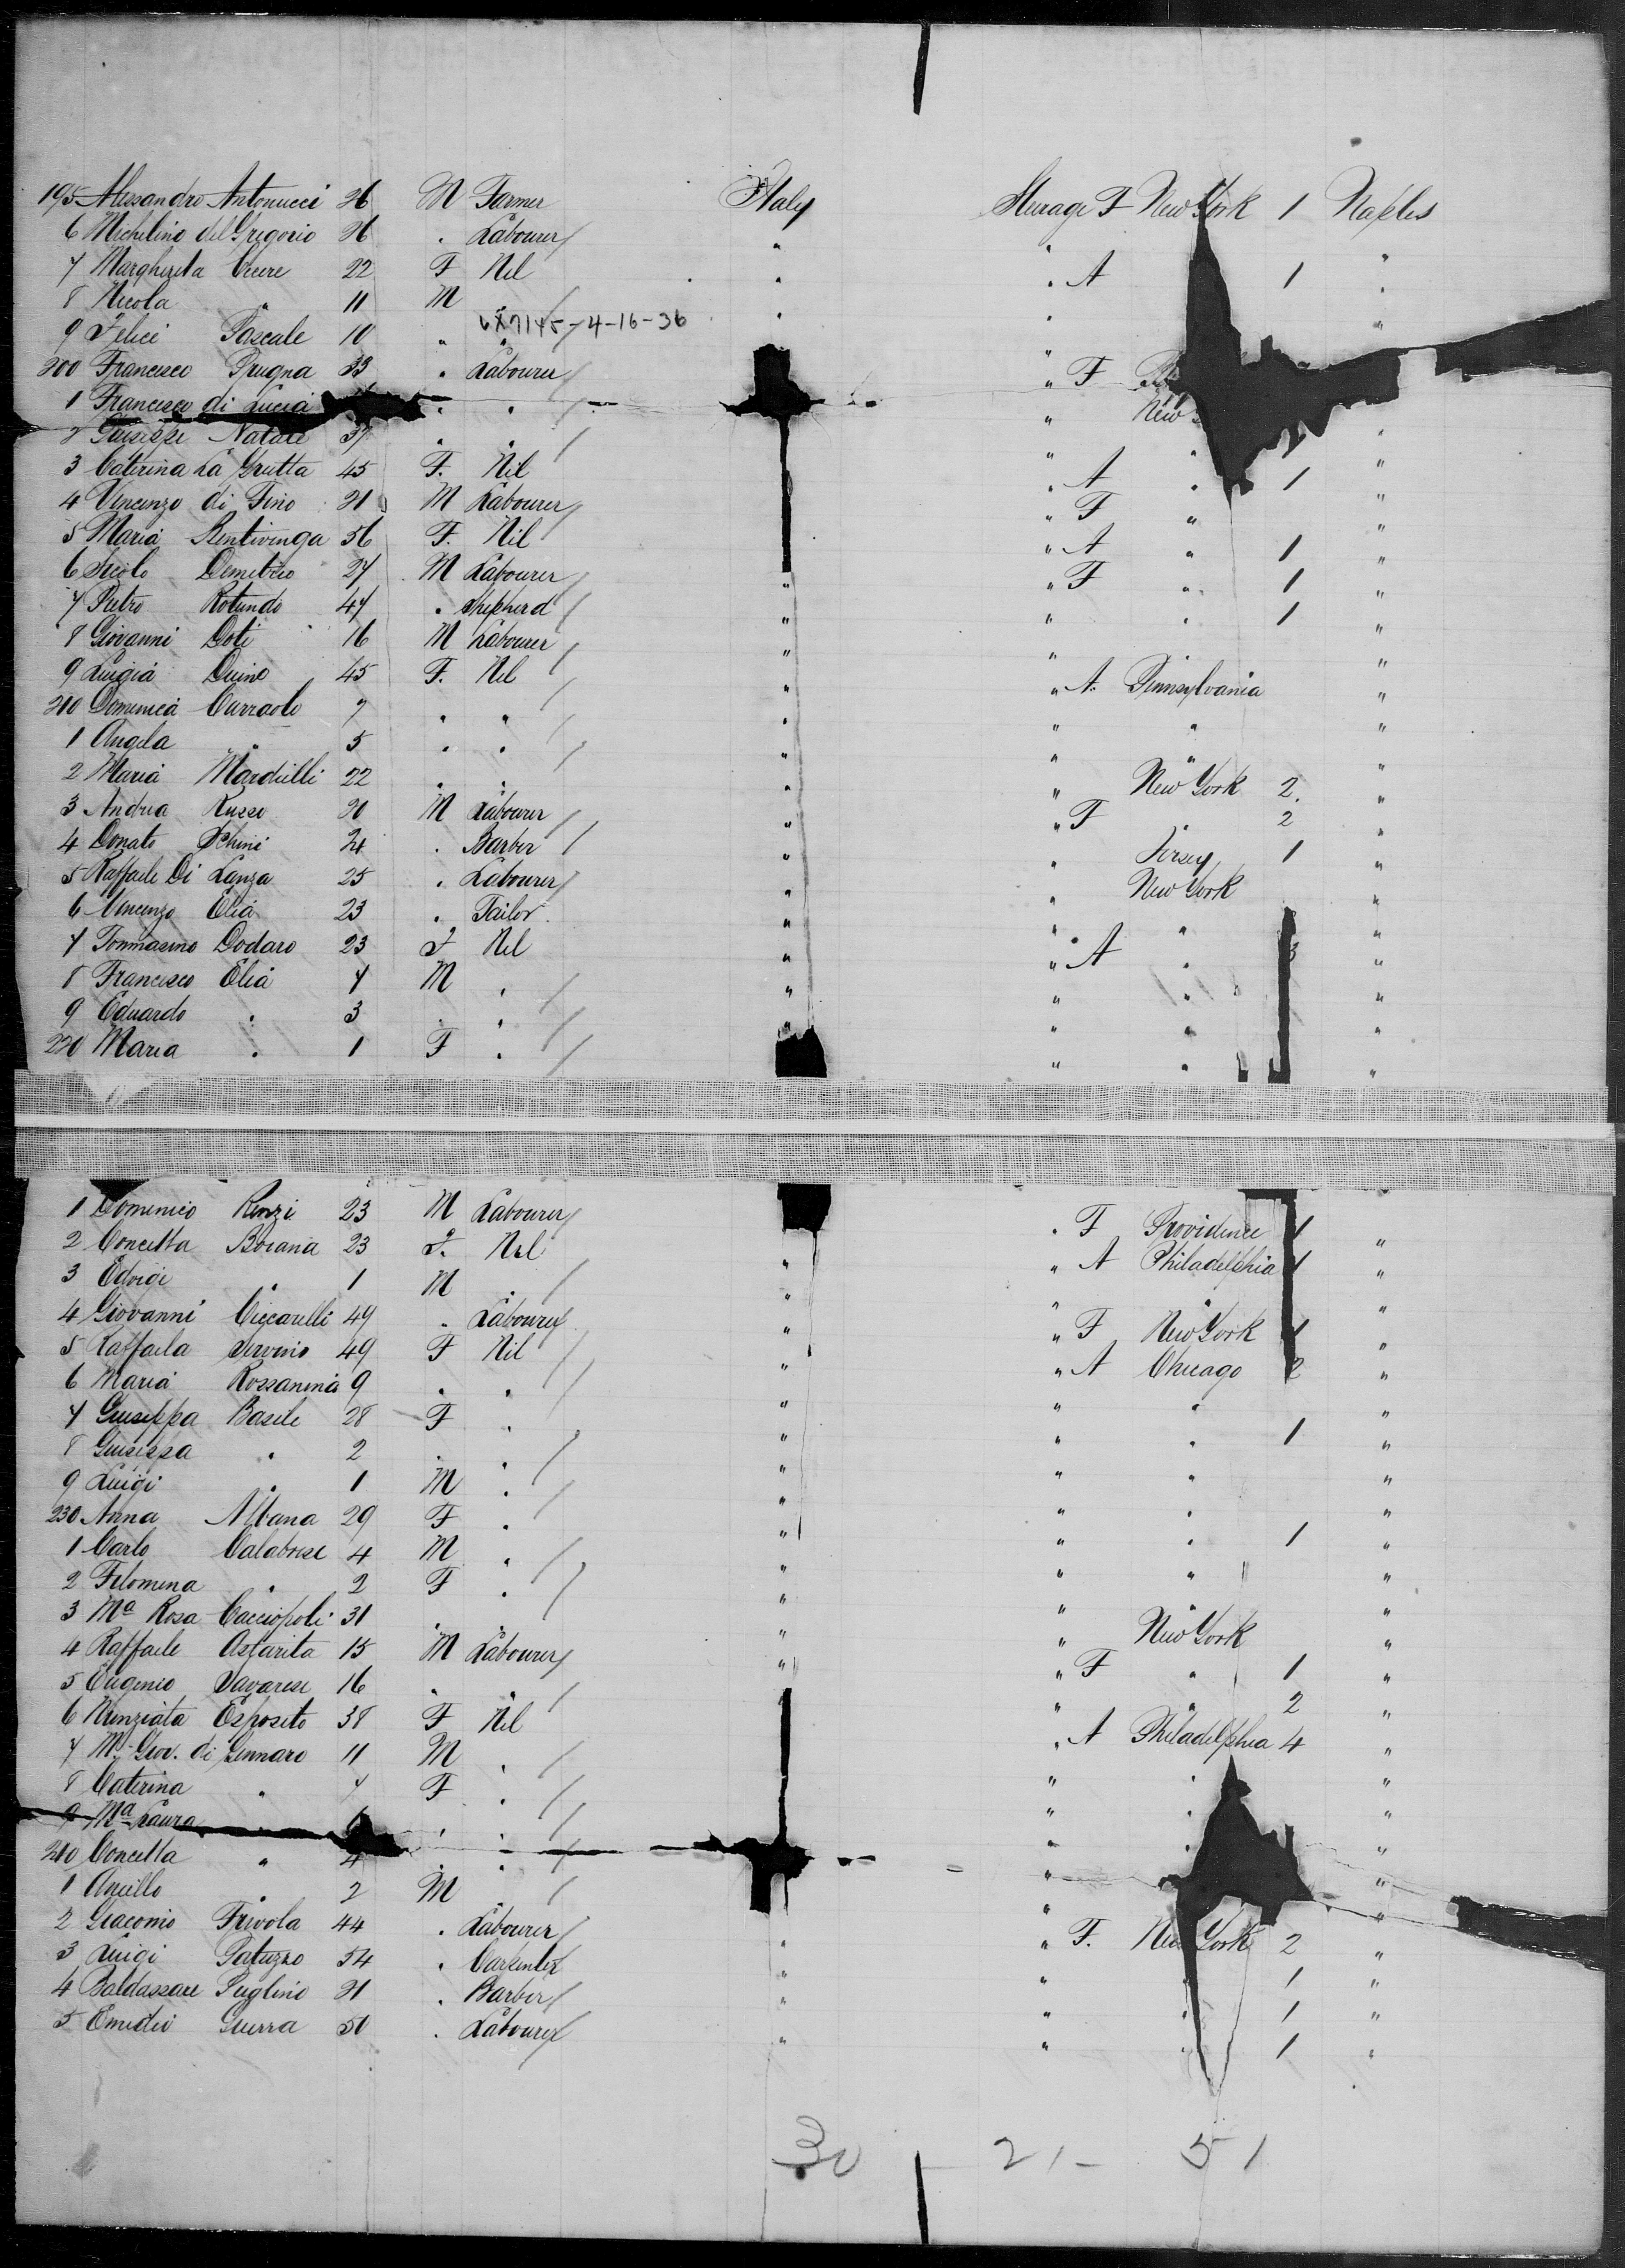 195 Alessandro Antonucci 26 M Farmer Italy Steerage F New York 1 Naples
6 Michelino del Gregorio 26 . Labourer " " "
7 Margherita 22 F Nil " " A 1 "
8 Nicola " 11 M " " "
9 Felici Pascale 10 " " 6X7145-4-16-36 " "
200 Francesco Prugna 33 " Labourer " F
1 Francesco di Lucia " " " New "
2 Giuseppe Natale 37 " " " " "
3 Caterina La Grutta 45 F. Nil " A " 1 "
4 Vincenzo di Fino 21 M Labourer " F " "
5 Maria Bentivenga 56 F. Nil " A " 1 "
6 Demetrio 27 M Labourer " " F " 1 "
7 Pietro Rotundo 47 " Shepherd " " " 1 "
8 Giovanni Doti 16 M Labourer " " " "
9 Luigia Duino 45 F. Nil " " A. Pennsylvania "
210 Domenica Carraoli 7 " " " " " "
1 Angela " 5 " " " " " "
2 Maria Mardulli 22 " " " " New York 2. "
3 Andrea Russo 20 M Labourer " " F 2 "
4 Donato Schini 24 . Barber " " Jersey 1 "
5 Raffaele Di Lanza 25 " Labourer " " New York "
6 Vincenzo Elia 23 " Tailor " " " "
7 Tommasino Dodaro 23 F Nil " " A " 3 "
8 Francesco Elia 7 M " " " " "
9 Eduardo " 3 " " " " " "
220 Maria " 1 F " " " "
1 Domenico Renzi 23 M Labourer " F Providence 1 "
2 Concetta Boiana 23 F. Nil " " A Philadelphia 1 "
3 Edvigi " 1 M " " " " "
4 Giovanni Ciccarelli 49 " Labourer " " F New York 1 "
5 Raffaela 49 F Nil " " A Chicago 2 "
6 Maria Rossanina 9 " " " " " "
7 Giuseppa Basile 28 F " " " " 1 "
8 Giuseppa " 2 " " " " " "
9 Luigi " 1 M " " " " "
230 Anna Albana 29 F " " " " 1 "
1 Carlo Calabrese 4 M " " " " "
2 Filomena " 2 F " " " " "
3 Ma Rosa Cacciopoli 31 " " " " New York "
4 Raffaele Astarita 15 M Labourer " " F " 1 "
5 Eugenio Savarese 16 " " " " " 2 "
6 Nunziata Esposito 38 F Nil " A Philadelphia 4 "
7 M. Giov. di Gennaro 11 M " " " "
8 Caterina " 7 F " " " "
9 Ma Laura " " " " "
240 Concetta " 4 " " " "
1 Aniello " 2 M " " "
2 Giacomo Frivola 44 " Labourer " " F. New York 2 "
3 Luigi Patuzzo 54 " Carpenter " " " 1 "
4 Baldassare Puglino 21 " Barber " " " 1 "
5 Emidio Guerra 50 " Labourer " " " 1 "
30 - 21 - 51